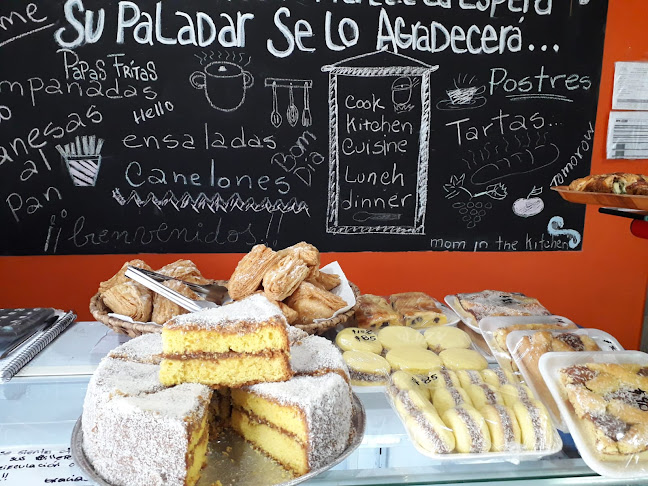 la Espera
Su Paladar Se Lo Agradecerá...
me
Papas Fritas
mpanadas
Hello
anesas
al
pan
ensaladas
Canelones
Bom
Dia
¡¡bienvenidos!!
Cook
kitchen
Cuisine
Lunch
dinner
Postres
Tartas...
Tomorow
mom in the kitchen
$85
$85
Gracia